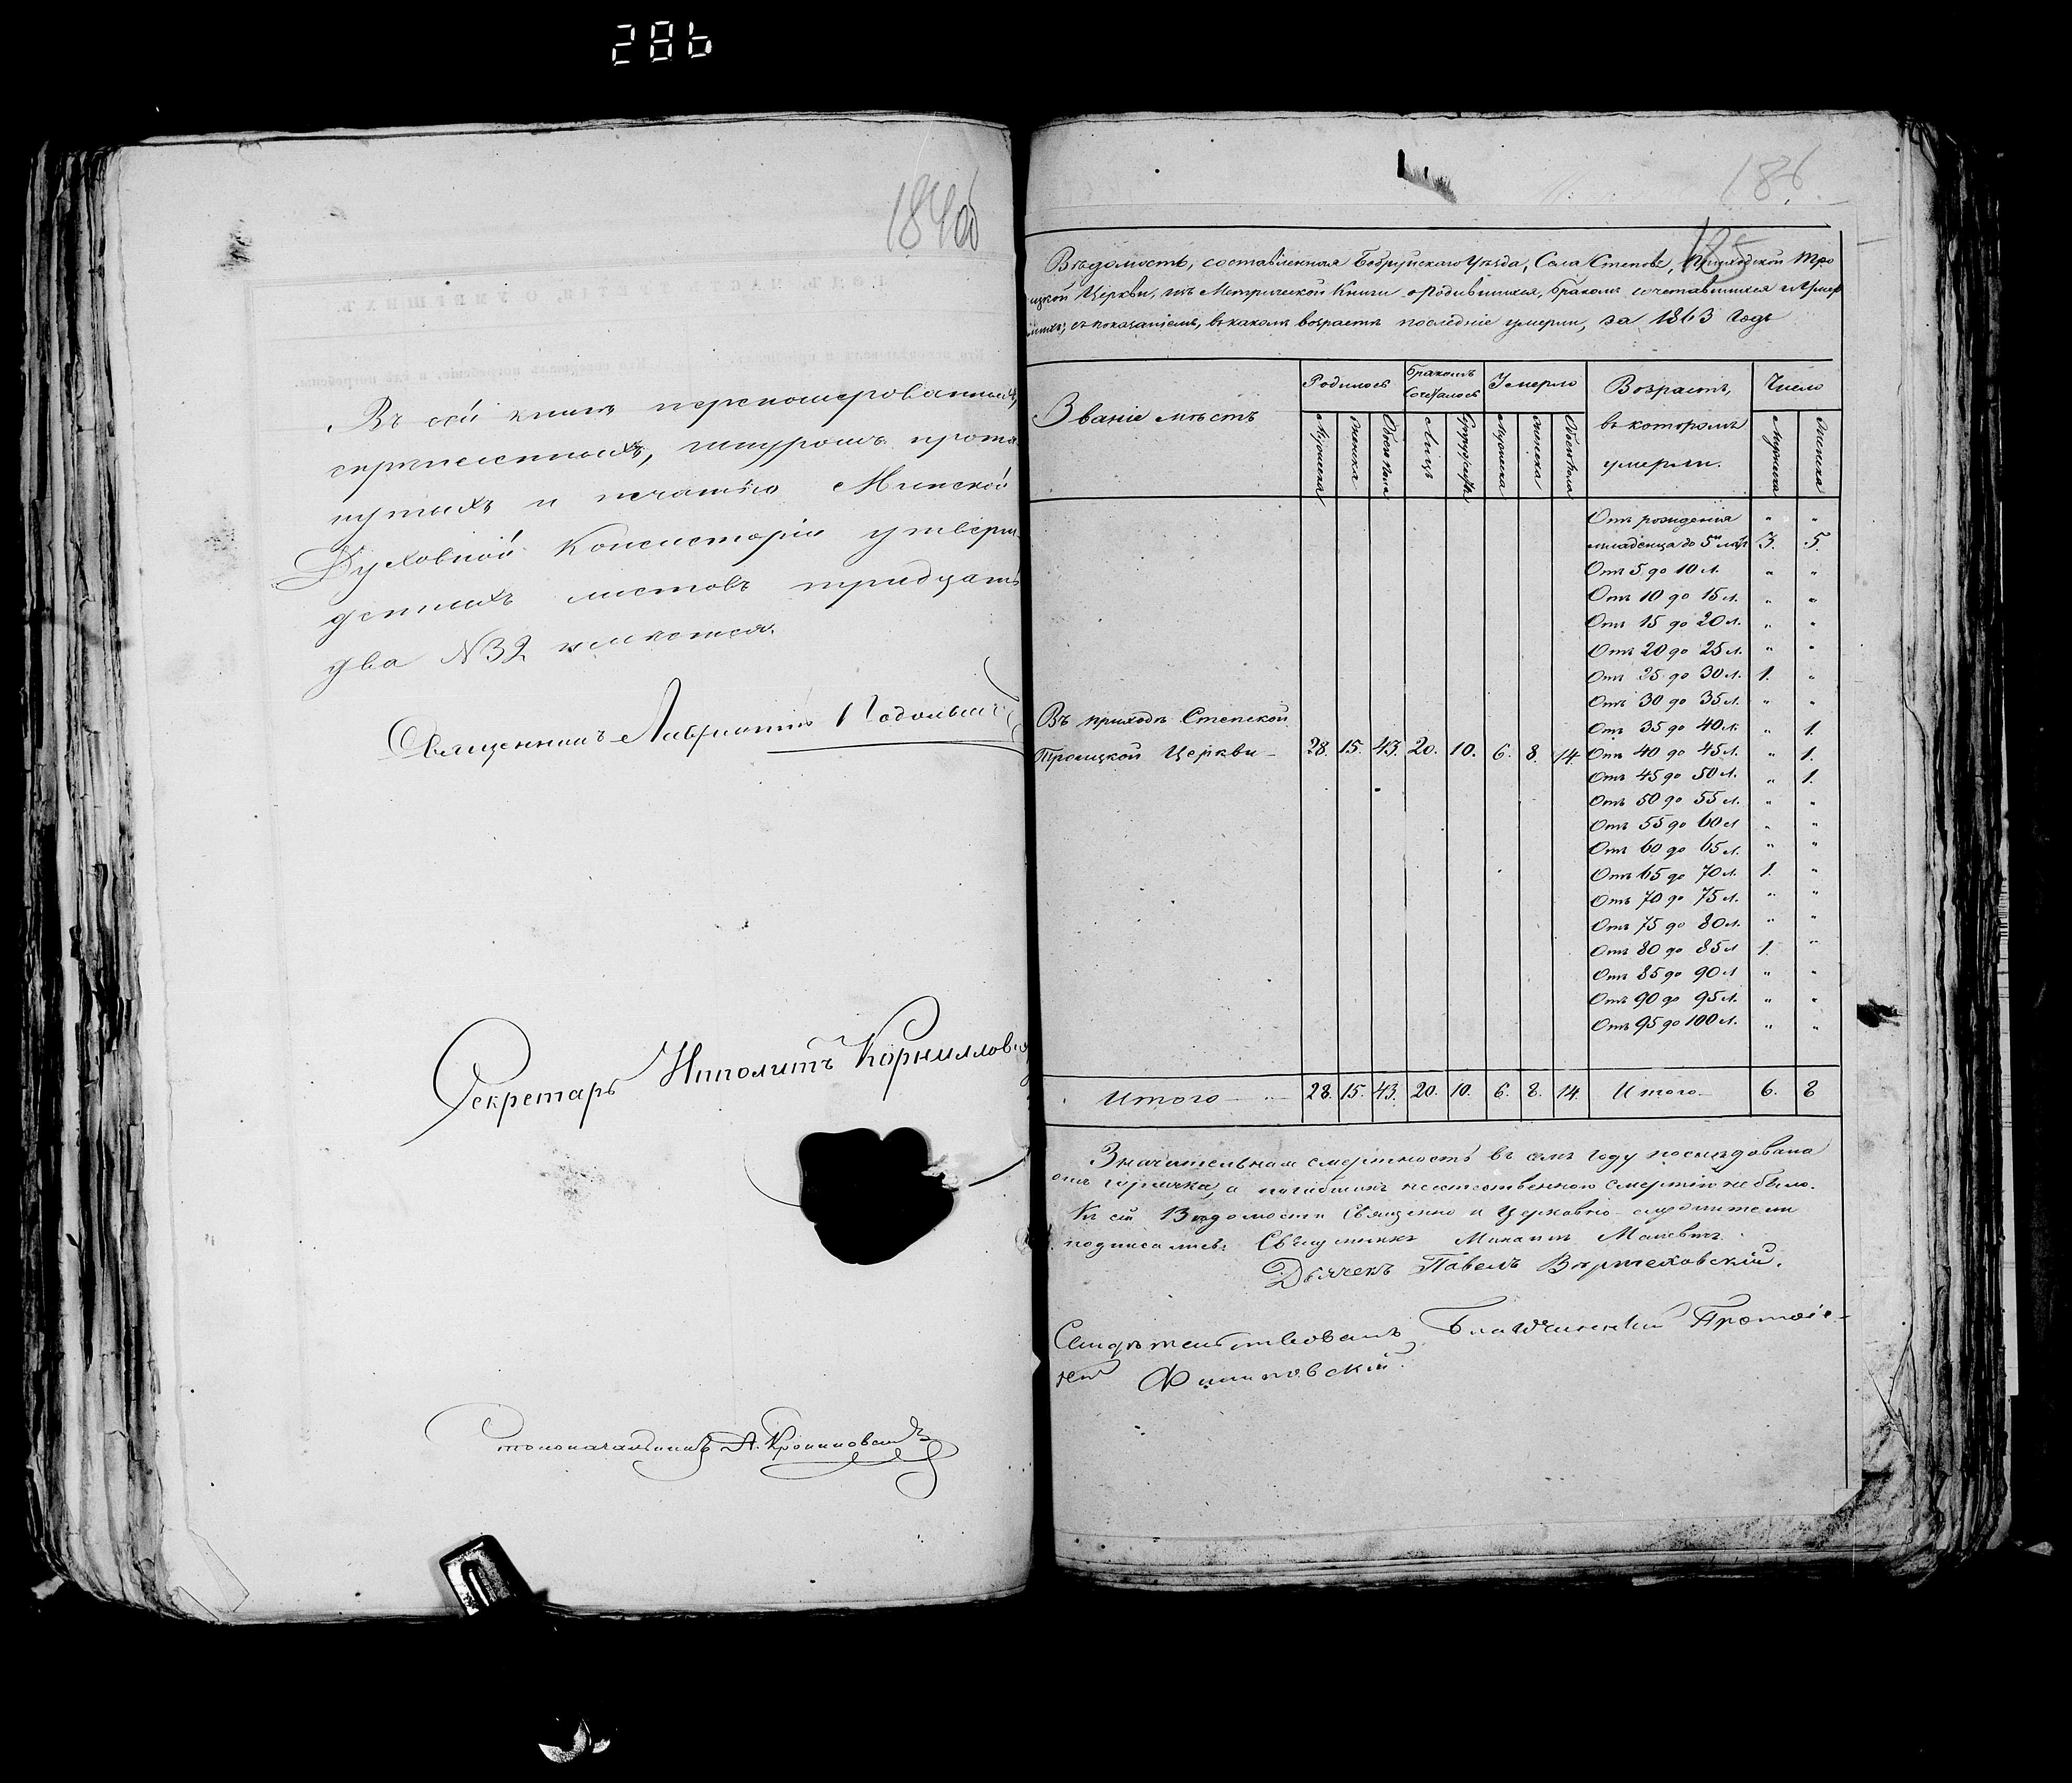 286
184
Въ сей книгѣ переномерованныхъ,
скрѣпленныхъ, шнуромъ протя
нутыхъ и печатью Минской
Духовной Консисторіи утверж
денныхъ листовъ тридцать
два №32 имѣется.
Священникъ Лаврентій
Секретарь Ипполитъ Корнилов
Столоначальникъ А.
186
185
Вѣдомость, составленная Бобруйскаго Уѣзда, Села Степовъ, Приходской Тро
ицкой Церкви, изъ Метрической Книги о Родившихся, бракомъ сочетавшихся и Умер
шихъ, съ показаніемъ, въ какомъ возрастѣ послѣдніе умерли, за 1863 Годъ
Званіе мѣстъ | Родилось | Бракомъ Сочеталось | Умерло | Возрастъ, въ которомъ умерли. | Число
Мужеска | Женска | Обоего Пола | Лицъ | Супружествъ | Мужеска | Женска | Обоего Пола | Мужеска | Женска
Отъ рожденія " "
младенца до 5ти лѣтъ 3. 5.
Отъ 5 до 10 л. " "
Отъ 10 до 15 л. " "
Отъ 15 до 20 л. " "
Отъ 20 до 25 л. " "
Отъ 25 до 30 л. 1. "
Отъ 30 до 35 л. " "
Въ приходѣ Степской
Отъ 35 до 40 л. " 1.
Троицкой Церкви – 28. 15. 43. 20. 10. 6. 8. 14. Отъ 40 до 45 л. " 1.
Отъ 45 до 50 л. " 1.
Отъ 50 до 55 л. " "
Отъ 55 до 60 л " "
Отъ 60 до 65 л. " "
Отъ 65 до 70 л. 1. "
Отъ 70 до 75 л. " "
Отъ 75 до 80 л. " "
Отъ 80 до 85 л 1. "
Отъ 85 до 90 л " "
Отъ 90 до 95 л. " "
Отъ 95 до 100 л. " "
Итого 28. 15. 43. 20. 10. 6. 8. 14. Итого 6. 8
Значительная смертность въ семъ году послѣдована
отъ горячки, а погибшихъ неестественною смертію не было.
Къ сей Вѣдомости Священно и Церковно-служители
подписались: Священникъ Михаилъ
Дьячекъ Павелъ Вержеховскій.
Свидѣтельствовалъ Благочинный Протоіе-
рей